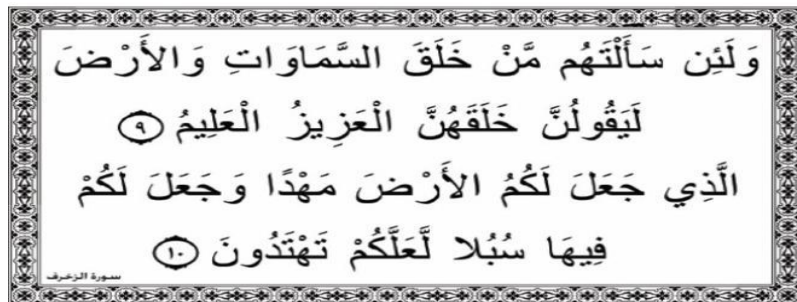 وَلَئِن سَأَلْتَهُم مَّنْ خَلَقَ السَّمَاوَاتِ وَالأَرْضَ
لَيَقُولُنَّ خَلَقَهُنَّ الْعَزِيزُ الْعَلِيمُ ٩
الَّذِي جَعَلَ لَكُمُ الأَرْضَ مَهْدًا وَجَعَلَ لَكُمْ
فِيهَا سُبُلا لَّعَلَّكُمْ تَهْتَدُونَ ١٠
سورة الزخرف